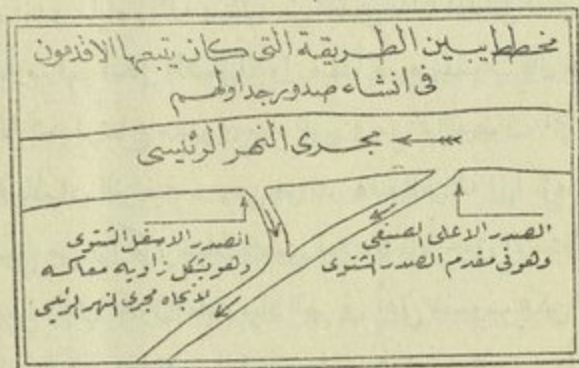 مخطط يبين الطريقة التي كان يتبعها الاقدمون
في انشاء صدور جداولهم
مجرى النهر الرئيسي
الصدر الاعلى الصيفي
وهو في مقدم الصدر الشتوي
الصدر الاسفل الشتوي
وهو بشكل زاويه معاكسه
لاتجاه مجرى النهر الرئيسي